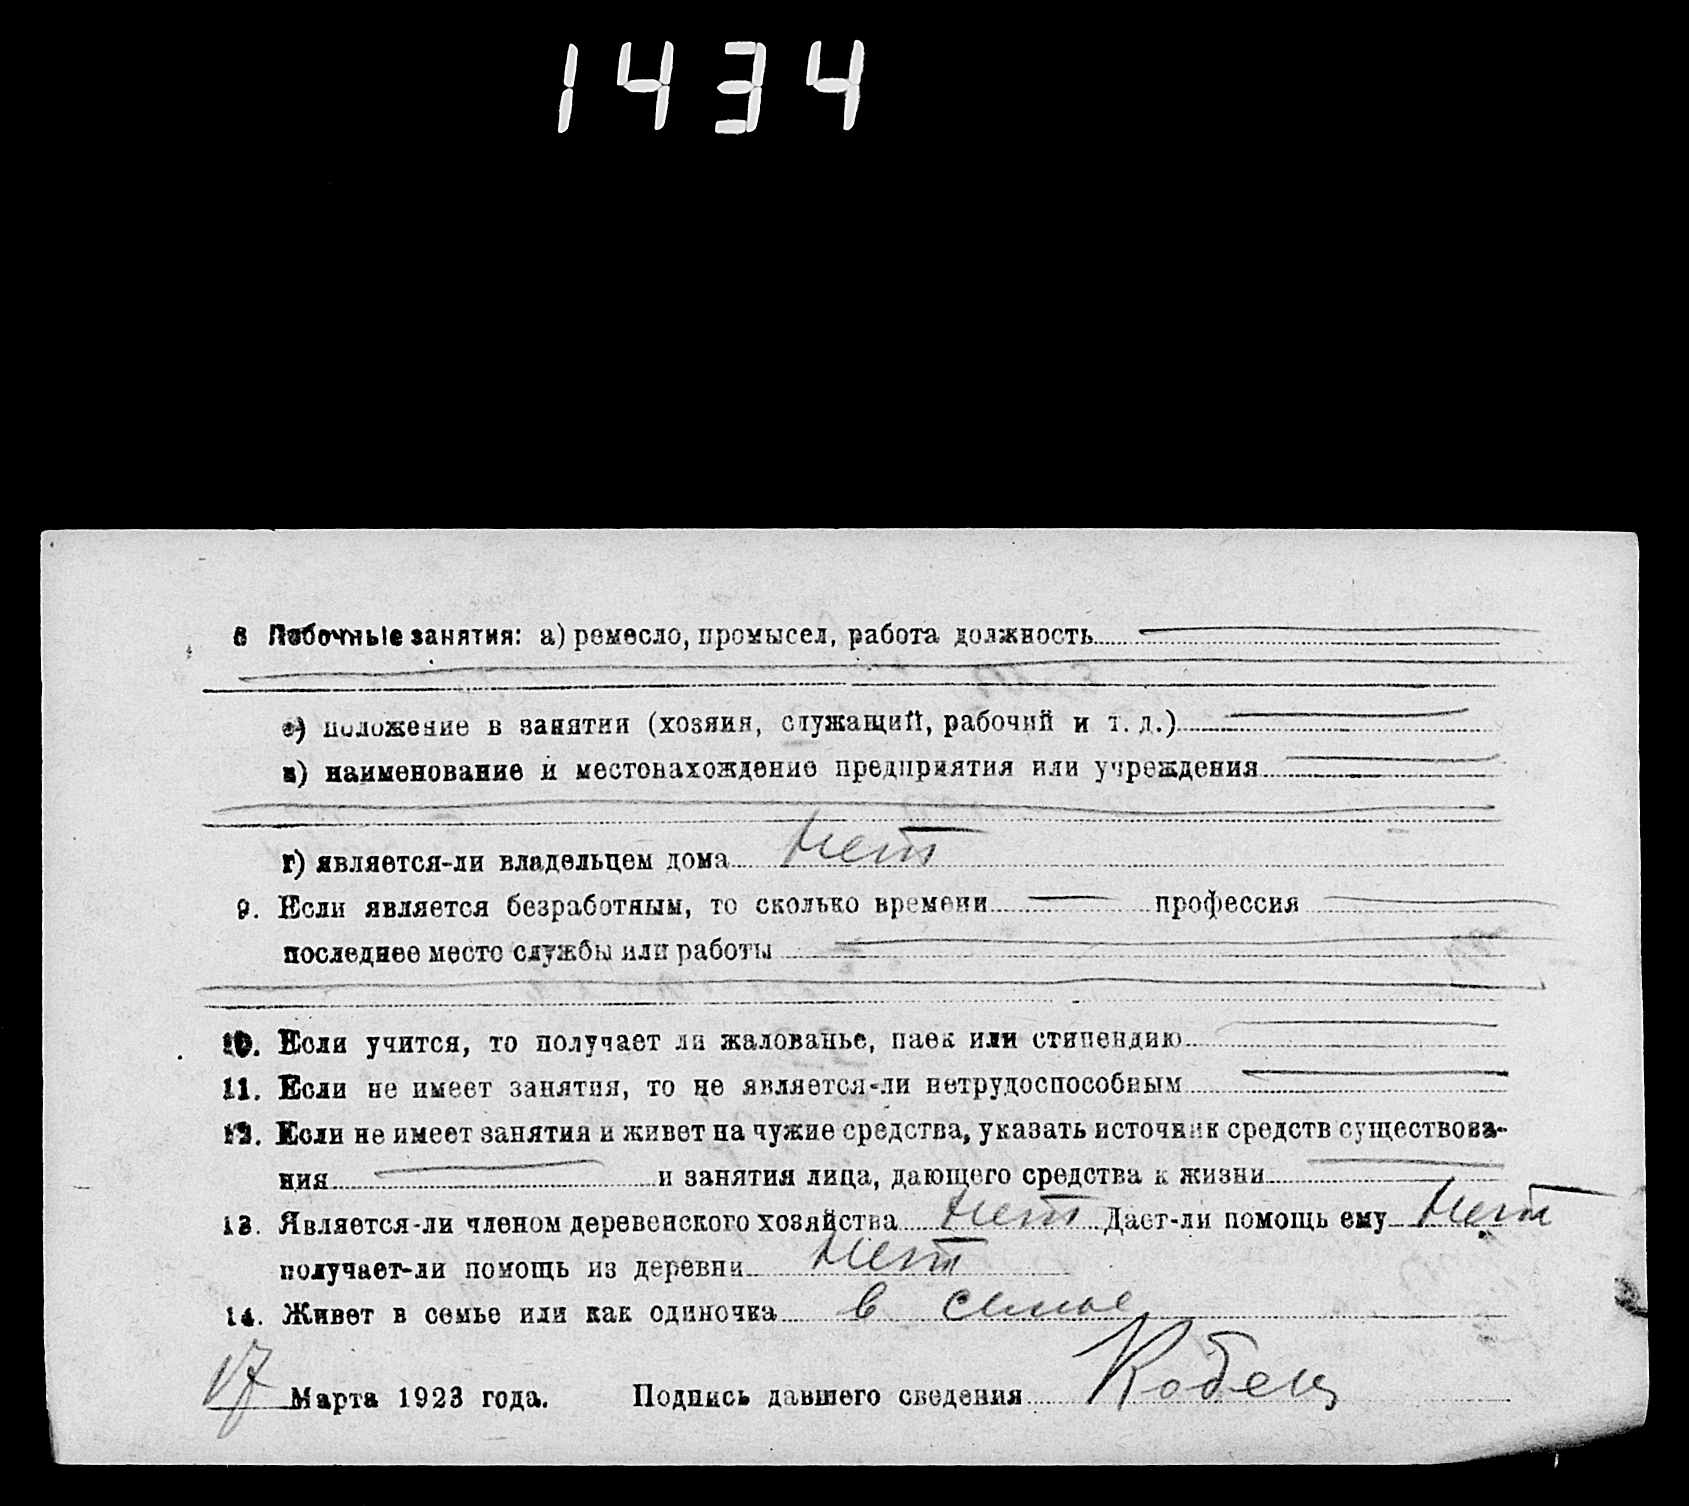 1434
8 Побочные занятия: а) ремесло, промысел, работа должность
б) положение в занятии (хозяин, служащий, рабочий и т. д.)
в) наименование и местонахождение предприятия или учреждения
г) является-ли владельцем дома Нет
9. Если является безработным, то сколько времени — профессия —
последнее место службы или работы
10. Если учится, то получает ли жалованье, паек или стипендию
11. Если не имеет занятия, то не является-ли нетрудоспособным
12. Если не имеет занятия и живет на чужие средства, указать источник средств существова-
ния — и занятия лица, дающего средства к жизни
13. Является-ли членом деревенского хозяйства Нет Дает-ли помощь ему Нет
получает-ли помощь из деревни Нет
14. Живет в семье или как одиночка в семье
17 Марта 1923 года. Подпись давшего сведения Кобец